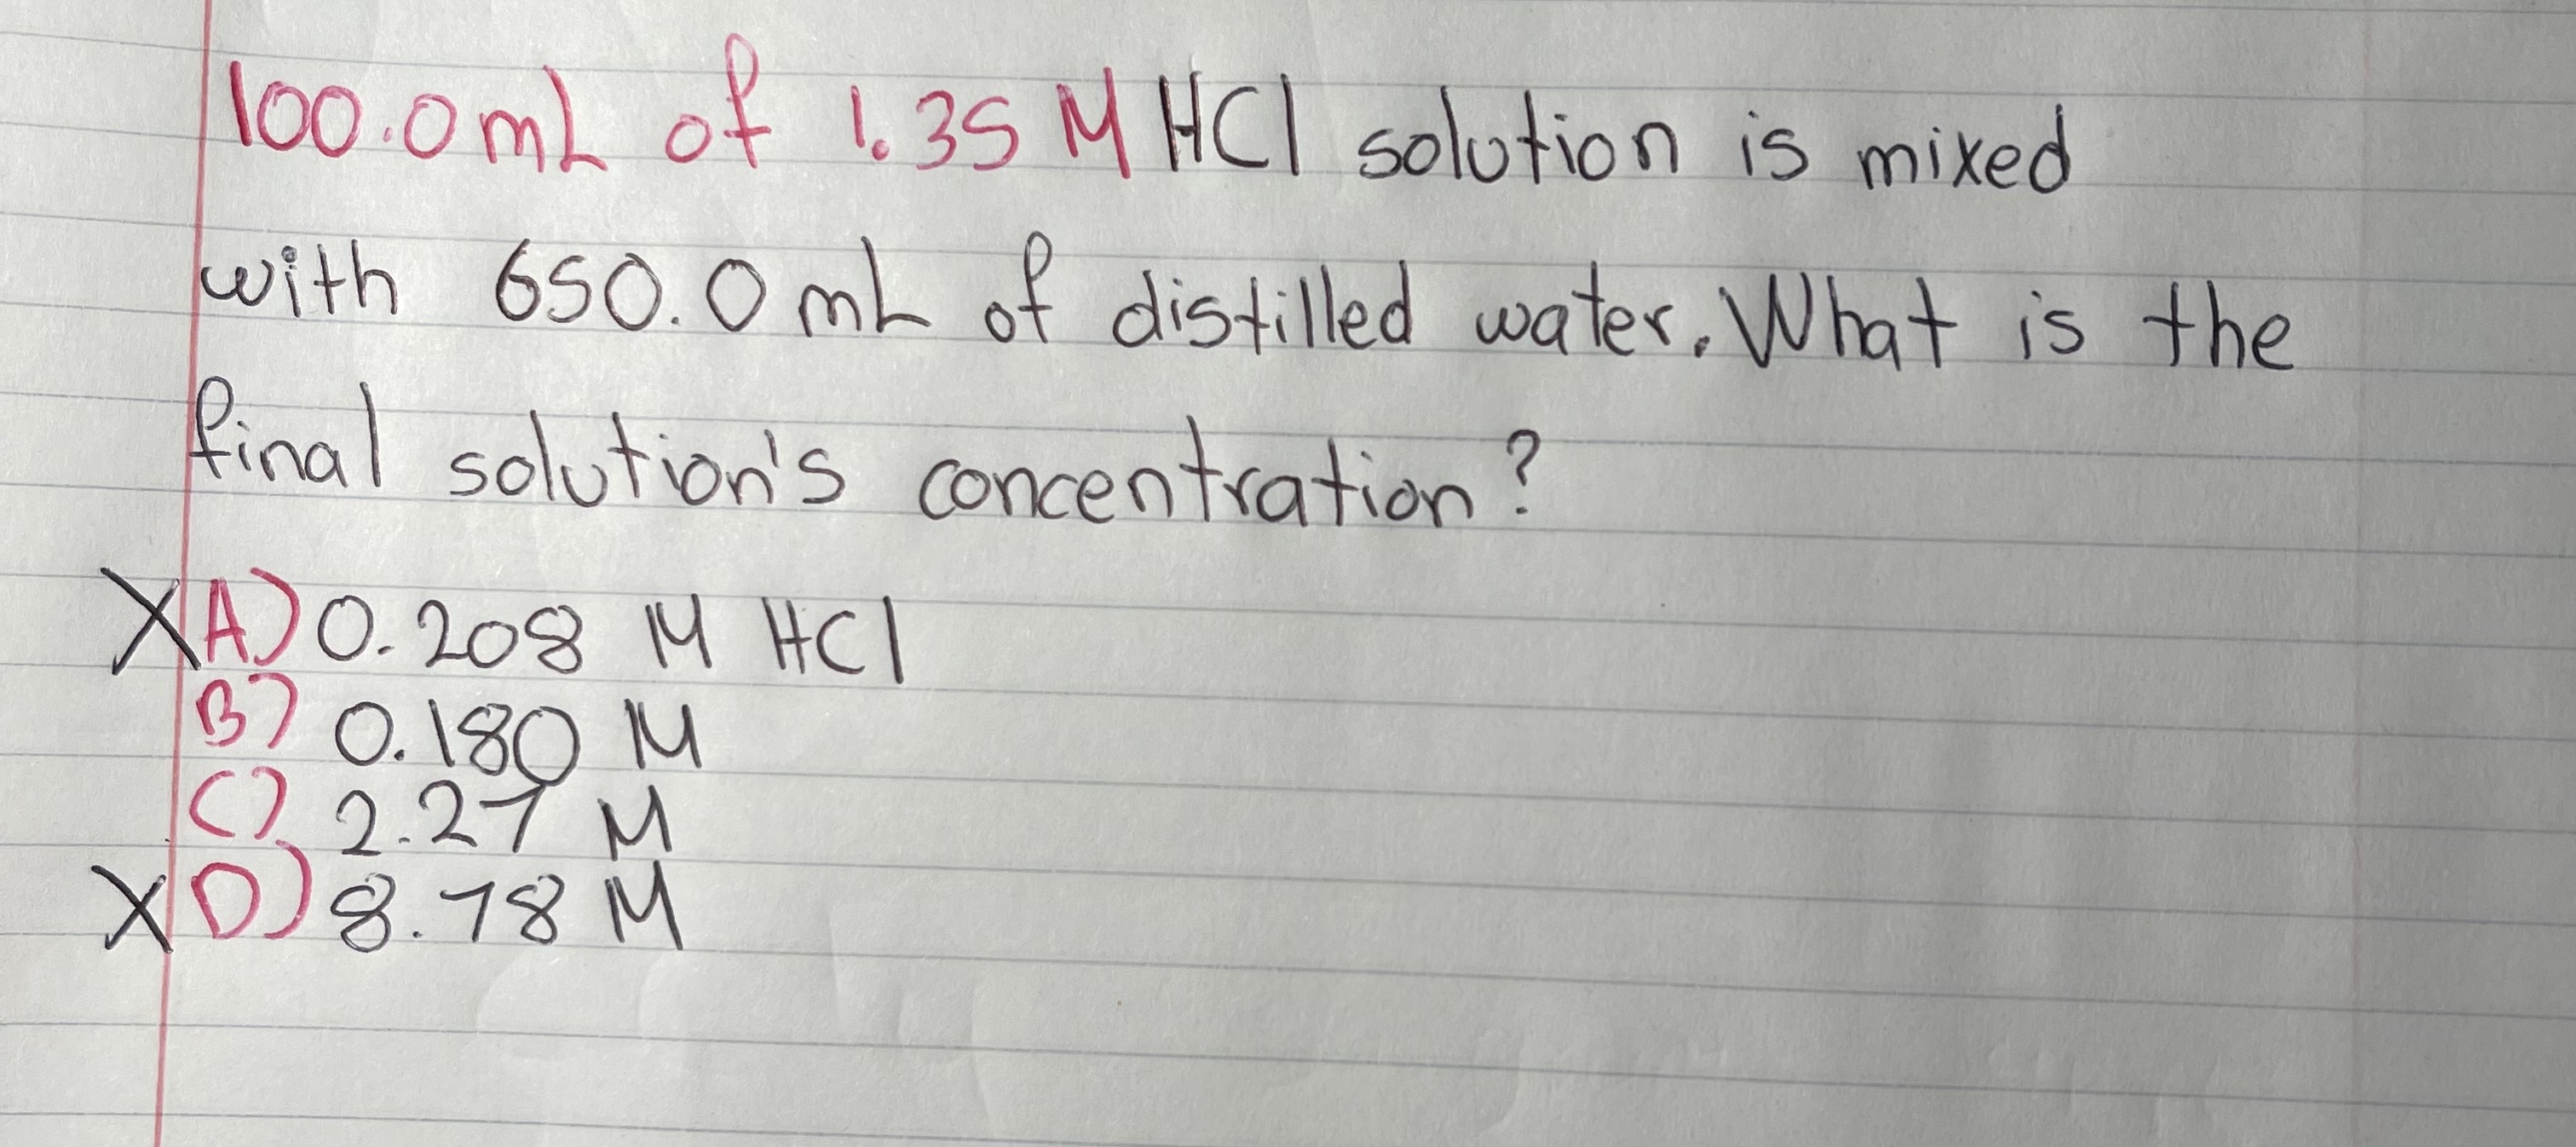 100.0 mL of 1.35 M HCl solution is mixed
with 650.0 mL of distilled water. What is the
final solution's concentration?
X A) 0.208 M HCl
B) 0.180 M
C) 2.27 M
X D) 8.78 M